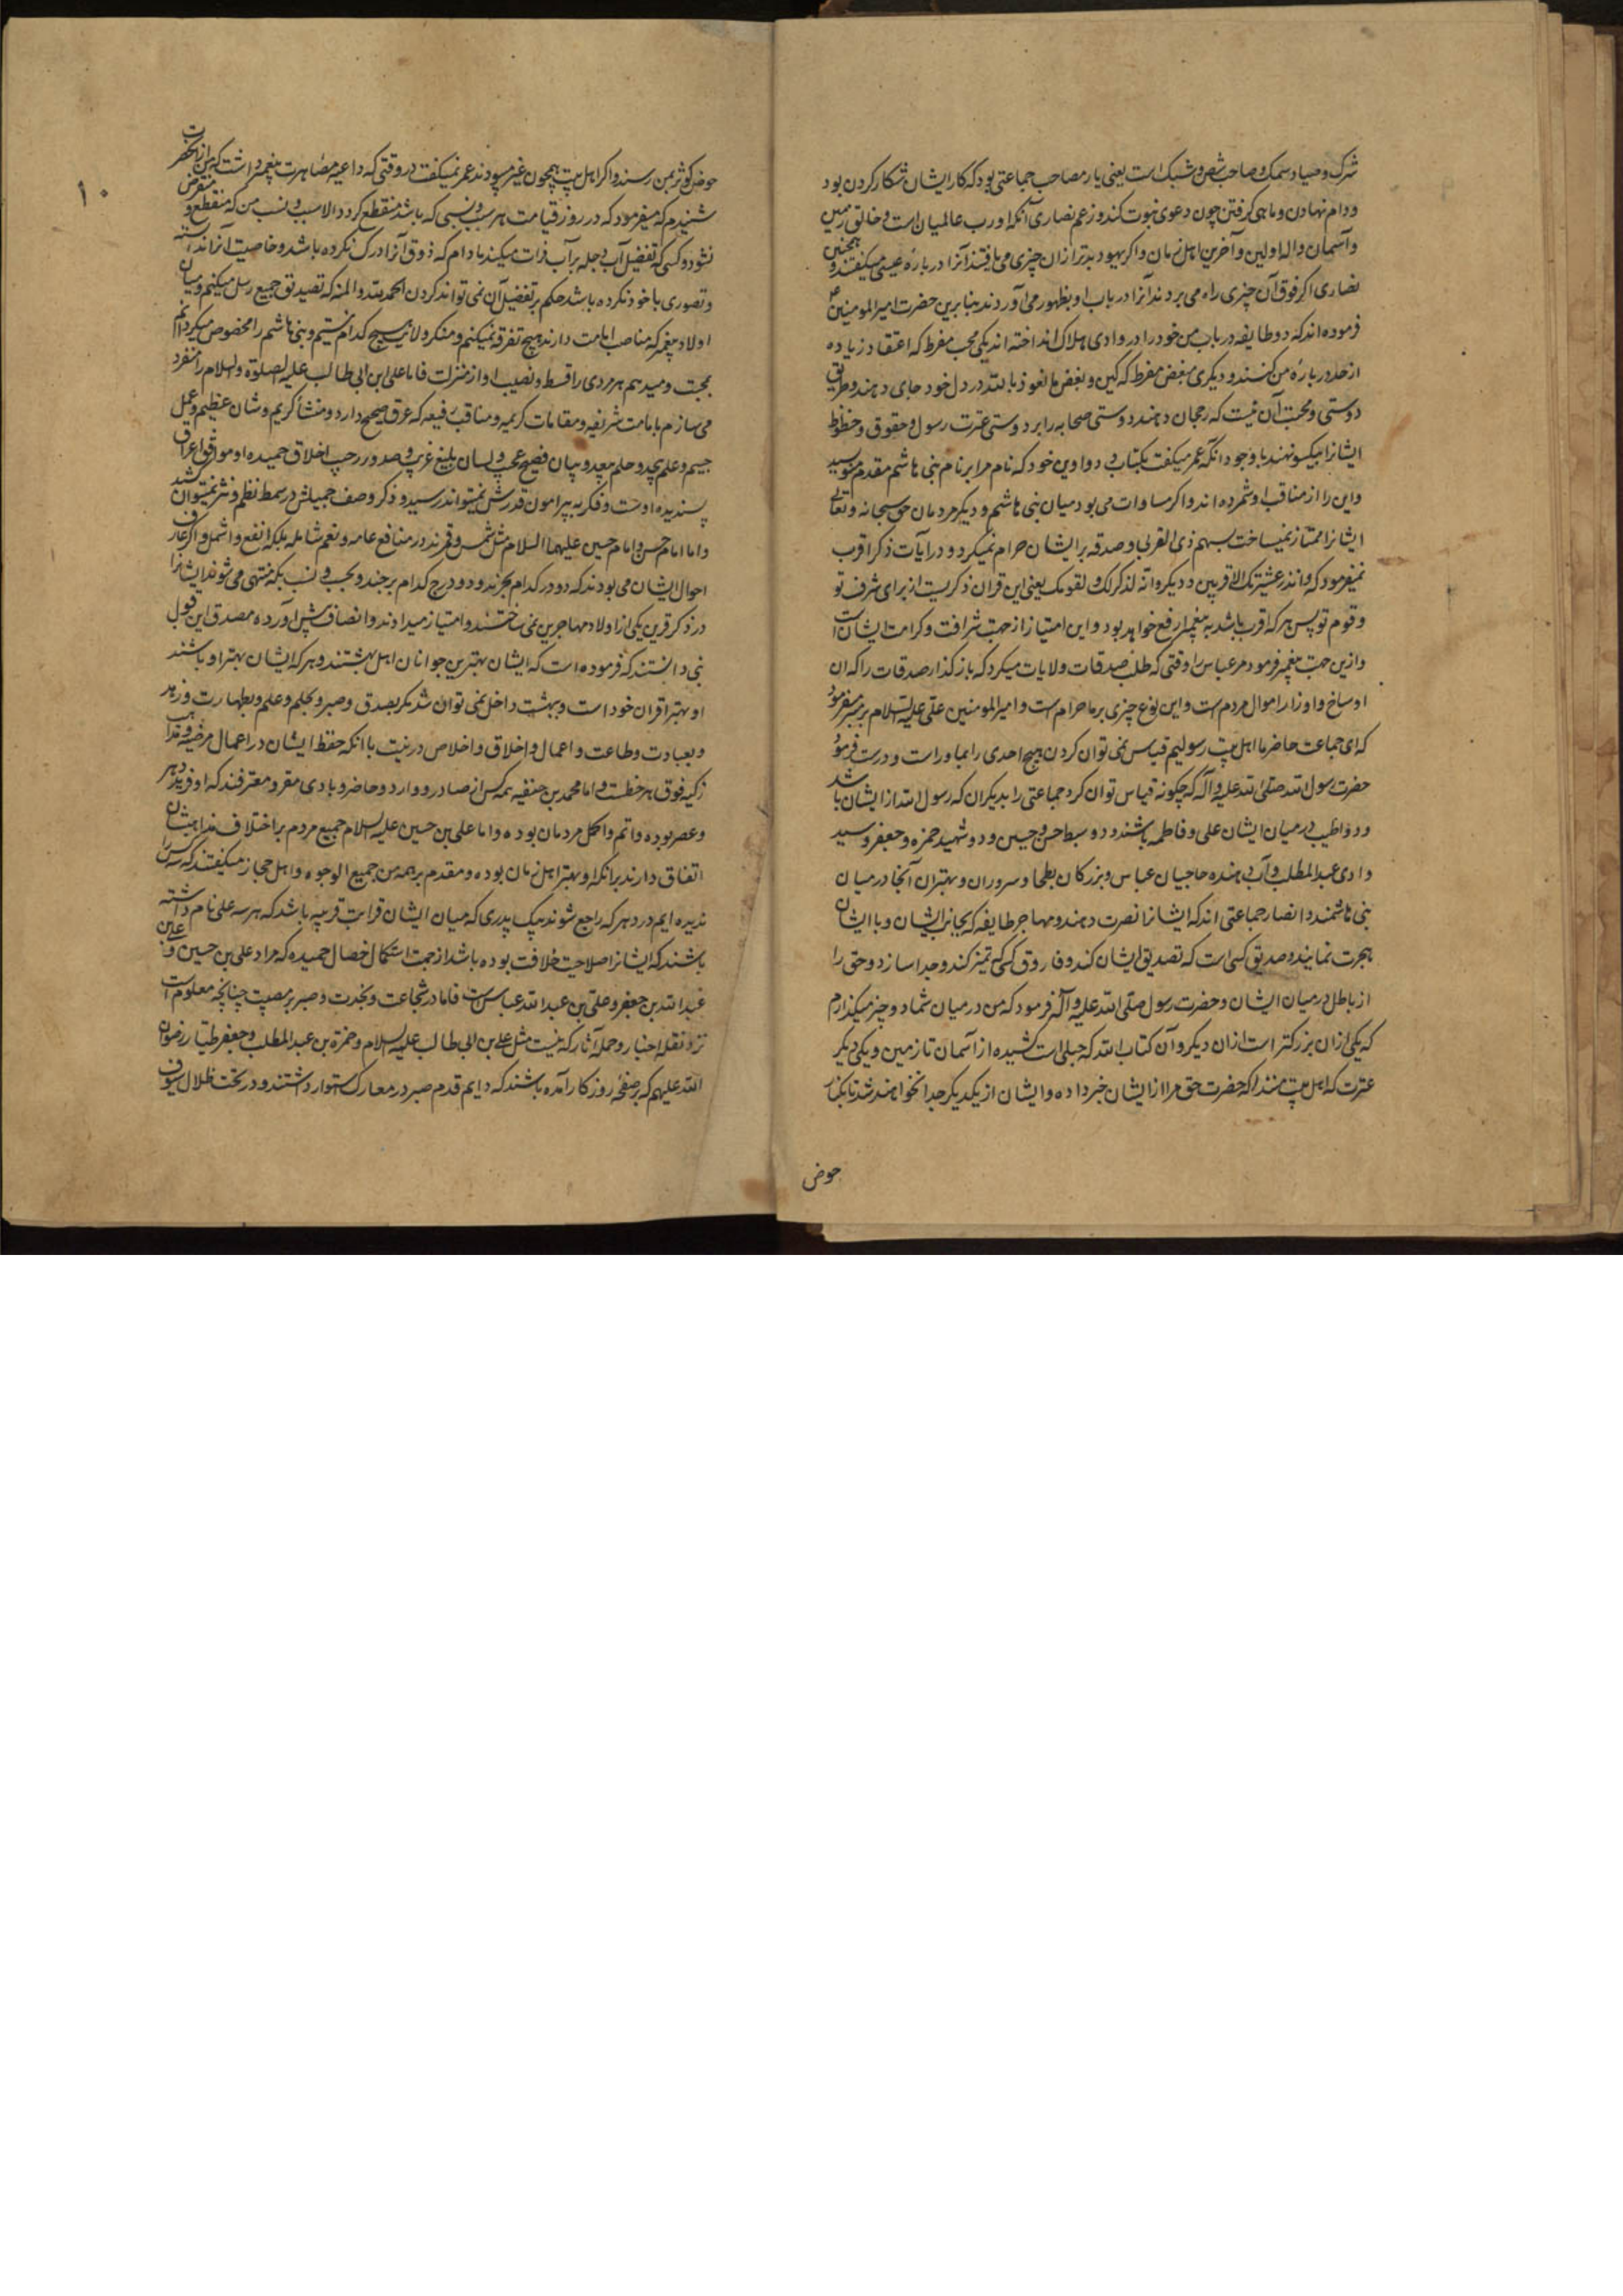 شرک و صیاد سمک و صاحب شص و شبک است یعنی یار مصاحب جماعتی بود که کار ایشان شکار کردن بود
و دام نهادن و ماهی گرفتن چون دعوی نبوت کند و زعم نصاری آنکه او رب عالمیان است و خالق زمین
و آسمان و اله اولین و آخرین اهل زمان و اگر یهود بدتر ازان چیزی می یافتند آنرا در باره عیسی میگفتند و همچنین
نصاری اگر فوق آن چیزی راه می بردند آنرا در باب او بظهور می آوردند بنابرین حضرت امیر المومنین ع
فرموده اند که دو طایفه در باب من خود را در وادی هلاک انداخته اند یکی محب مفرط که اعتقاد زیاده
از حد در باره من کنند و دیگری مبغض مفرط که کین و بغض ما نعوذ بالله در دل خود جای دهند و طریق
دوستی و محبت آن نیست که رجحان دهند دوستی صحابه را بر دوستی عترت رسول و حقوق و حظوظ
ایشانرا بیکسو نهند با وجود انکه عمر میگفت بکتاب دواوین خود که نام مرا بر نام بنی هاشم مقدم منویسید
و این را از مناقب او شمرده اند و اگر مساوات می بود میان بنی هاشم و دیگر مردمان حق سبحانه و تعالی
ایشانرا ممتاز نمیساخت بسهم ذی القربی و صدقه بر ایشان حرام نمیکرد و در آیات ذکر اقرب
نمیفرمود که و انذر عشیرتک الاقربین و دیگر و انه لذکر لک و لقومک یعنی این قران ذکریست از برای شرف تو
و قوم تو پس هر که اقرب باشد به پیغمبر ارفع خواهد بود و این امتیاز از جهت شرافت و کرامت ایشان است
و ازین جهت پیغمبر فرمود مر عباس را وقتی که طلب صدقات ولایات میکرد که باز گذار صدقات را که ان
اوساخ و اوزار اموال مردم است و این نوع چیزی بر ما حرام است و امیر المومنین علی علیه السلام بر منبر میفرمود
که ای جماعت حاضر ما اهل بیت رسولیم قیاس نمی توان کردن هیچ احدی را بما و راست و درست فرمود
حضرت رسول الله صلی الله علیه و آله که چگونه قیاس توان کرد جماعتی را بدیگران که رسول الله از ایشان باشد
و دو اطیب در میان ایشان علی و فاطمه باشند و دو سبط حسن و حسین و دو شهید حمزه و جعفر و سید
وادی عبد المطلب و آب دهنده حاجیان عباس و بزرگان بطحا و سروران و بهتران آنجا در میان
بنی هاشمند و انصار جماعتی اند که ایشانرا نصرت دهند و مهاجر طایفه که بجانب ایشان و با ایشان
هجرت نمایند و صدیق کسی است که تصدیق ایشان کند و فاروق کسی که تمیز کند و جدا سازد و حق را
از باطل در میان ایشان و حضرت رسول صلی الله علیه و آله فرمود که من در میان شما دو چیز میگذارم
که یکی ازان بزرگتر است ازان دیگر و آن کتاب الله که حبلی است کشیده از آسمان تا زمین و یکی دیگر
عترت که اهل بیت منند که حضرت حق مرا از ایشان خبر داده و ایشان از یکدیگر جدا نخواهند شد تا بکنار
حوض
۱۰
حوض کوثر بمن رسند و اگر اهل بیت همچون غیر میبودند عمر نمیگفت در وقتی که داعیه مصاهرت پیغمبر داشت که من از آنحضرت
شنیدم که میفرمود که در روز قیامت هر سبب و نسبی که باشد منقطع گردد الا سبب و نسب من که منقطع و منقرض
نشود و کسی که تفضیل آب دجله بر آب فرات میکند مادام که ذوق آنرا درک نکرده باشد و خاصیت آنرا ندانسته
و تصوری با خود نکرده باشد حکم بر تفضیل آن نمی تواند کردن الحمد لله و المنه که تصدیق جمیع رسل میکنیم و میان
اولاد پیغمبر که مناصب امامت دارند هیچ تفرقه نمیکنیم و منکر ولای هیچ کدام نیستیم و بنی هاشم را مخصوص میگردانم
بمحبت و میدهم هر مردی را قسط و نصیب او از منزلت فاما علی ابن ابی طالب علیه الصلوة و السلام را منفرد
می سازم بامامت شریفه و مقامات کریمه و مناقب رفیعه که عرق صحیح دارد و منشأ کریم و شان عظیم و عمل
جسیم و علم بیحد و حلم بیعد و بیان فصیح عجیب و لسان بلیغ غریب و صدور رحب اخلاق حمیده او موافق اعراق
پسندیده اوست و فکر به پیرامون قدرش نمیتواند رسید و ذکر وصف جمیلش در سمط نظم و نثر نمیتوان کشید
و اما امام حسن و امام حسین علیهما السلام مثل شمس و قمرند در منافع عامه و نعم شامله بلکه انفع و اشمل و اگر عارف
احوال ایشان می بودند که دو در کدام بحرند و دو درج کدام برجند و بحسب و نسب بکه منتهی می شوند ایشانرا
در ذکر قرین یکی از اولاد مهاجرین نمی ساختند و امتیاز میدادند و انصاف پیش آورده مصدق این قول
نبی دانستند که فرموده است که ایشان بهترین جوانان اهل بهشتند و هر که ایشان بهتر او باشند
او بهتر اقران خود است و ببهشت داخل نمی توان شد مگر بصدق و صبر و بحلم و علم و بطهارت و زهد
و بعبادت و طاعت و اعمال و اخلاق و اخلاص در نیت با انکه حفظ ایشان در اعمال مرضیه و مذاهب
زکیه فوق هر حظست و اما محمد بن حنفیه همه کس از صادر و وارد و حاضر و بادی مقر و معترفند که او فرید دهر
و عصر بوده و اتم و اکمل مردمان بوده و اما علی بن حسین علیه السلام جمیع مردم بر اختلاف مذاهبشان
اتفاق دارند بر انکه او بهتر اهل زمان بوده و مقدم بر همه من جمیع الوجوه و اهل حجاز میگفتند که سه کس را
ندیده ایم در دهر که راجع شوند بیک پدری که میان ایشان قرابت قریبه باشد که هر سه علی نام داشته
باشند که ایشانرا صلاحیت خلافت بوده باشد از جهت استکمال خصال حمیده که مراد علی بن حسین و علی بن
عبد الله بن جعفر و علی بن عبد الله عباس است فاما در شجاعت و نجدت و صبر بر مصیبت چنانچه معلوم است
نزد نقله اخبار و حمله آثار که نیست مثل علی بن ابی طالب علیه السلام و حمزه بن عبد المطلب و جعفر طیار رضوان
الله علیهم که بر صفحه روزگار آمده باشند که دایم قدم صبر در معارک استوار داشتند و در تحت ظلال سیوف